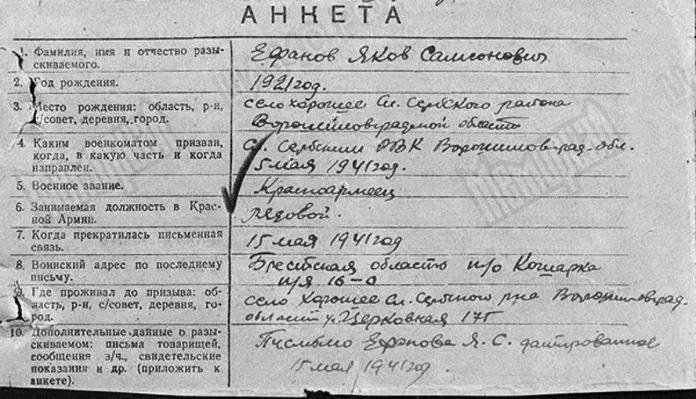 АНКЕТА
1. Фамилия, имя и отчество разы-
скиваемого.
Ефанов Яков Самсонович
2. Год рождения.
1921 год.
3. Место рождения: область, р-н,
с/совет, деревня, город.
село Хорошее Сл. Сербского района
Ворошиловградской области
4. Каким военкоматом призван,
когда, в какую часть и когда
направлен.
Сл. Сербским РВК Ворошиловград. обл.
5 мая 1941 год.
5. Военное звание.
Красноармеец
6. Занимаемая должность в Крас-
ной Армии.
рядовой.
7. Когда прекратилась письменная
связь.
15 мая 1941 год
8. Воинский адрес по последнему
письму.
Брестская область п/о Кошарка
п/я 16-0
9. Где проживал до призыва: об-
ласть, р-н, с/совет, деревня, го-
род.
село Хорошее Сл. Сербского р-на Ворошиловград.
области ул. Церковная 175
10. Дополнительные данные о разы-
скиваемом: письма товарищей,
сообщения з/ч., свидетельские
показания и др. (приложить к
анкете).
Письмо Ефанова Я. С. датированное
15 мая 1941 год.